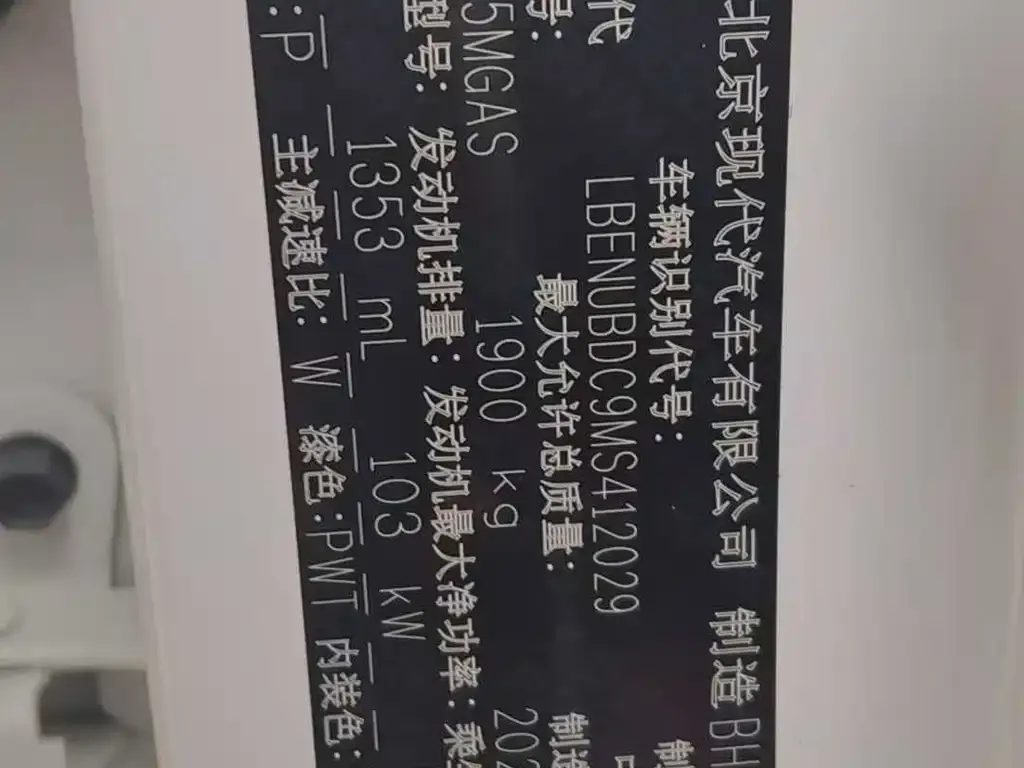 北京现代汽车有限公司 制造 BH
车辆识别代号: 制
LBENUBDC9MS412029
代
号: 最大允许总质量: 制造
5MGAS 1900 kg 202
型号: 发动机排量: 发动机最大净功率: 乘
1353 mL 103 kW
:P 主减速比: W 漆色:PWT 内装色: